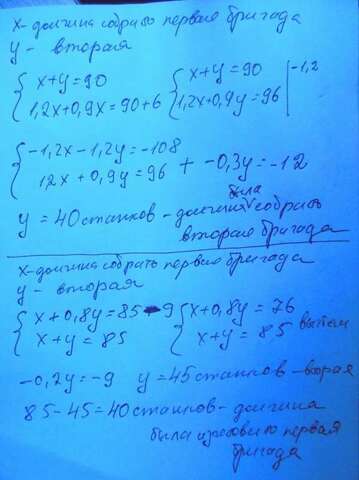 x-должна собрать первая бригада
y- вторая
{ x+y=90 { x+y=90 | -1,2
1,2x+0,9x=90+6 1,2x+0,9y=96
{ -1,2x-1,2y=-108
12x+0,9y=96 + -0,3y=-12
y=40 станков - должна была собрать
вторая бригада
x-должна собрать первая бригада
y- вторая
{ x+0,8y=85-9 { x+0,8y=76
x+y=85 x+y=85 вычтем
-0,2y=-9 y=45 станков - вторая
85-45=40 станков - должна
была первая
бригада